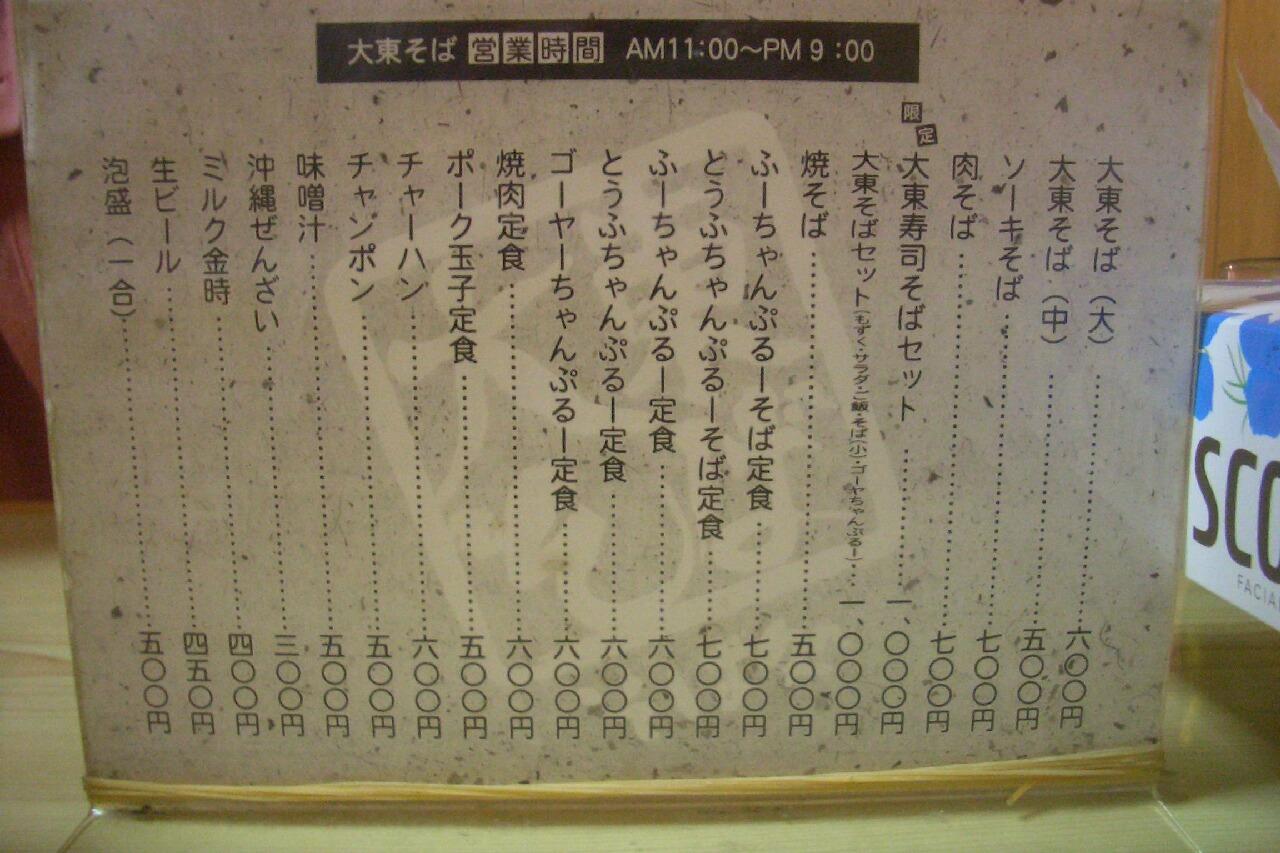 大東そば 営業時間 AM11:00～PM9:00
大東そば（大）……六〇〇円
大東そば（中）……五〇〇円
ソーキそば……七〇〇円
肉そば……七〇〇円
限定 大東寿司そばセット……一、〇〇〇円
大東そばセット（もずく・サラダ・ご飯・そば（小）・ゴーヤちゃんぷるー）…一、〇〇〇円
焼そば……五〇〇円
ふーちゃんぷるーそば定食……七〇〇円
とうふちゃんぷるーそば定食……七〇〇円
ふーちゃんぷるー定食……六〇〇円
とうふちゃんぷるー定食……六〇〇円
ゴーヤーちゃんぷるー定食……六〇〇円
焼肉定食……六〇〇円
ポーク玉子定食……五〇〇円
チャーハン……六〇〇円
チャンポン……五〇〇円
味噌汁……五〇〇円
沖縄ぜんざい……三〇〇円
ミルク金時……四〇〇円
生ビール……四五〇円
泡盛（一合）……五〇〇円
SCO
FACIA